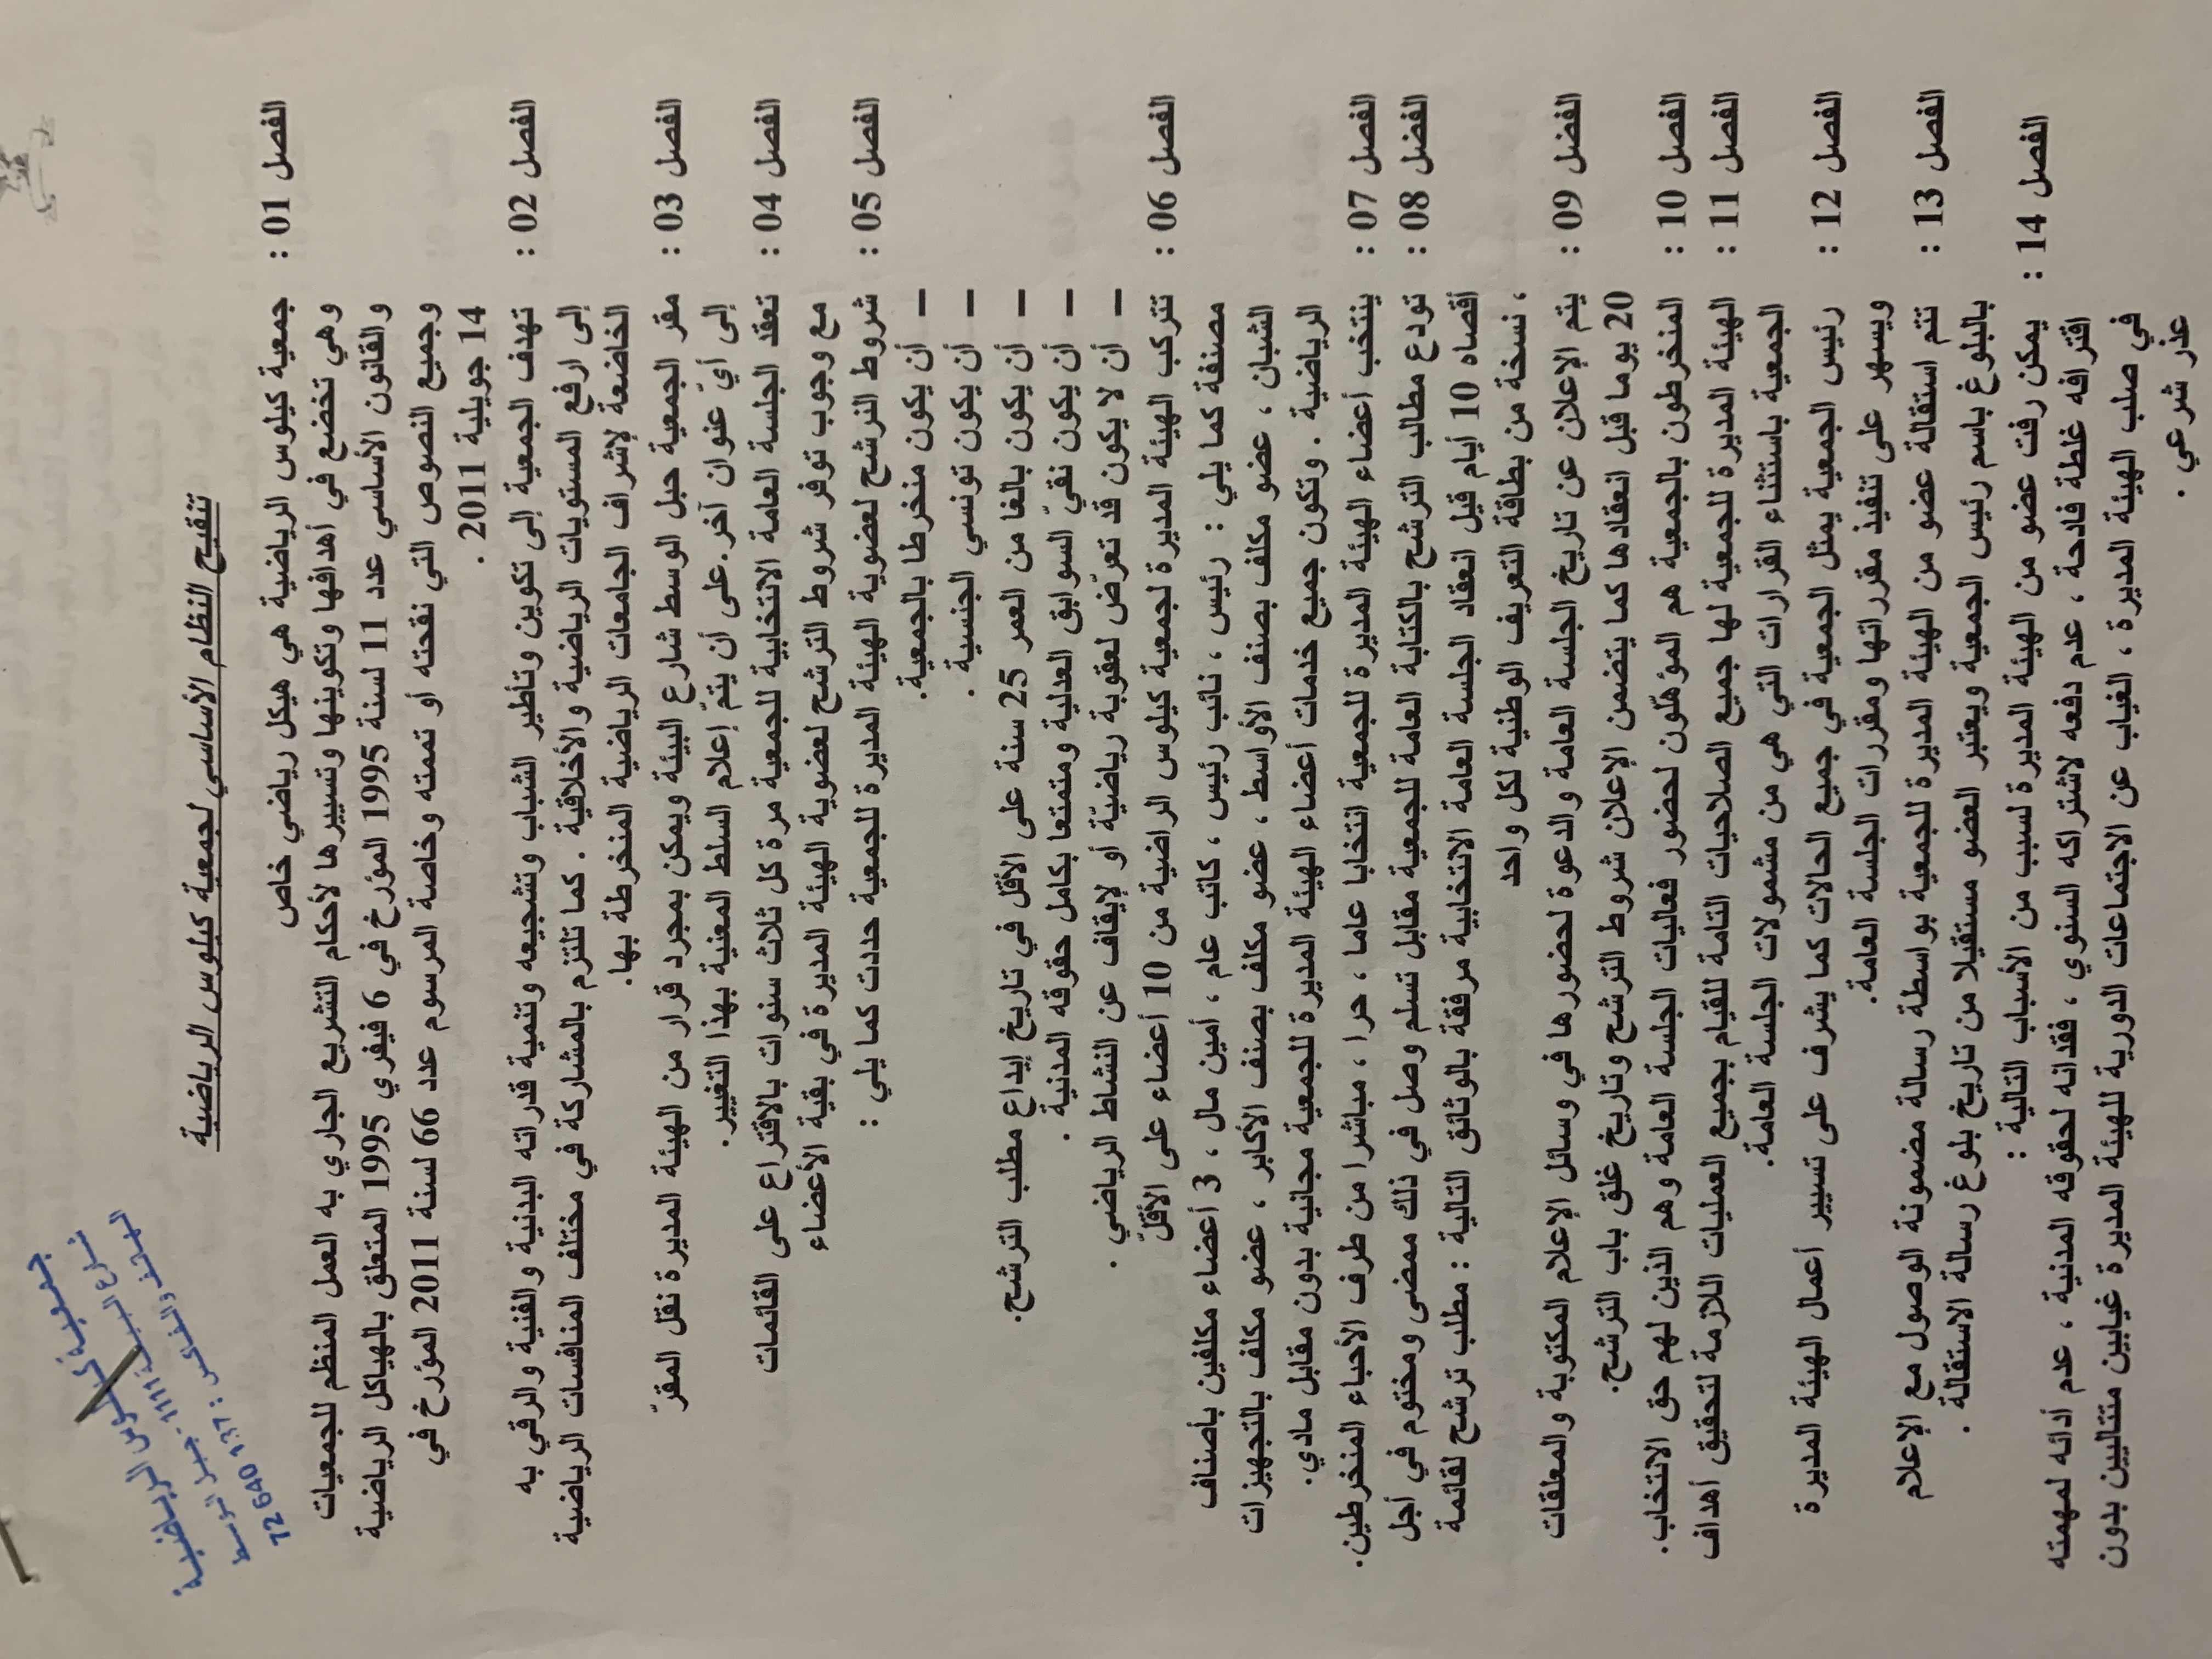 جمعية كيلوس الرياضية
شارع البيئة 1111 جبل الوسط
الهاتف والفاكس : 72640137
تنقيح النظام الأساسي لجمعية كيلوس الرياضية
الفصل 01 : جمعية كيلوس الرياضية هي هيكل رياضي خاص
وهي تخضع في أهدافها وتكوينها وتسييرها لأحكام التشريع الجاري به العمل المنظم للجمعيات
والقانون الأساسي عدد 11 لسنة 1995 المؤرخ في 6 فيفري 1995 المتعلق بالهياكل الرياضية
وجميع النصوص التي نقحته أو تممته وخاصة المرسوم عدد 66 لسنة 2011 المؤرخ في
14 جويلية 2011 .
الفصل 02 : تهدف الجمعية إلى تكوين وتأطير الشباب وتشجيعه وتنمية قدراته البدنية والفنية والرقي به
إلى ارفع المستويات الرياضية والأخلاقية . كما تلتزم بالمشاركة في مختلف المنافسات الرياضية
الخاضعة لإشراف الجامعات الرياضية المنخرطة بها.
الفصل 03 : مقر الجمعية حبل الوسط شارع البيئة ويمكن بمجرد قرار من الهيئة المديرة نقل المقرّ
إلى أيّ عنوان آخر.على أن يتمّ إعلام السلط المعنية بهذا التغيير.
الفصل 04 : تعقد الجلسة العامة الانتخابية للجمعية مرة كل ثلاث سنوات بالاقتراع على القائمات
مع وجوب توفر شروط الترشح لعضوية الهيئة المديرة في بقية الأعضاء
الفصل 05 : شروط الترشح لعضوية الهيئة المديرة للجمعية حددت كما يلي :
– أن يكون منخرطا بالجمعية.
– أن يكون تونسي الجنسية .
– أن يكون بالغا من العمر 25 سنة على الأقل في تاريخ إيداع مطلب الترشح.
– أن يكون نقيّ السوابق العدلية ومتمتعا بكامل حقوقه المدنية .
– أن لا يكون قد تعرّض لعقوبة رياضيّة أو لإيقاف عن النشاط الرياضي .
الفصل 06 : تتركب الهيئة المديرة لجمعية كيلوس الراضية من 10 أعضاء على الأقلّ
مصنفة كما يلي : رئيس ، نائب رئيس ، كاتب عام ، أمين مال ، 3 أعضاء مكلفين بأصناف
الشبان ، عضو مكلف بصنف الأواسط ، عضو مكلف بصنف الأكابر ، عضو مكلف بالتجهيزات
الرياضية . وتكون جميع خدمات أعضاء الهيئة المديرة للجمعية مجانية بدون مقابل مادي.
الفصل 07 : ينتخب أعضاء الهيئة المديرة للجمعية انتخابا عاما ، حرا ، مباشرا من طرف الأحباء المنخرطين.
الفضل 08 : تودع مطالب الترشح بالكتابة العامة للجمعية مقابل تسلم وصل في ذلك ممضى ومختوم في أجل
أقصاه 10 أيام قبل انعقاد الجلسة العامة الانتخابية مرفقة بالوثائق التالية : مطلب ترشح لقائمة
، نسخة من بطاقة التعريف الوطنية لكل واحد
الفصل 09 : يتم الإعلان عن تاريخ الجلسة العامة والدعوة لحضورها في وسائل الإعلام المكتوبة والمعلقات
20 يوما قبل انعقادها كما يتضمن الإعلان شروط الترشح وتاريخ غلق باب الترشح.
الفصل 10 : المنخرطون بالجمعية هم المؤهلّون لحضور فعاليات الجلسة العامة وهم الذين لهم حق الانتخاب.
الفصل 11 : الهيئة المديرة للجمعية لها جميع الصلاحيات التامة للقيام بجميع العمليات اللازمة لتحقيق أهداف
الجمعية باستثناء القرارات التي هي من مشمولات الجلسة العامة.
الفصل 12 : رئيس الجمعية يمثل الجمعية في جميع الحالات كما يشرف على تسيير أعمال الهيئة المديرة
ويسهر على تنفيذ مقرراتها ومقررات الجلسة العامة.
الفصل 13 : تتم استقالة عضو من الهيئة المديرة للجمعية بواسطة رسالة مضمونة الوصول مع الإعلام
بالبلوغ باسم رئيس الجمعية ويعتبر العضو مستقيلا من تاريخ بلوغ رسالة الاستقالة .
الفصل 14 : يمكن رفت عضو من الهيئة المديرة لسبب من الأسباب التالية :
اقترافه غلطة فادحة ، عدم دفعه لاشتراكه السنوي ، فقدانه لحقوقه المدنية ، عدم أدائه لمهمته
في صلب الهيئة المديرة ، الغياب عن الاجتماعات الدورية للهيئة المديرة غيابين متتاليين بدون
عذر شرعي .